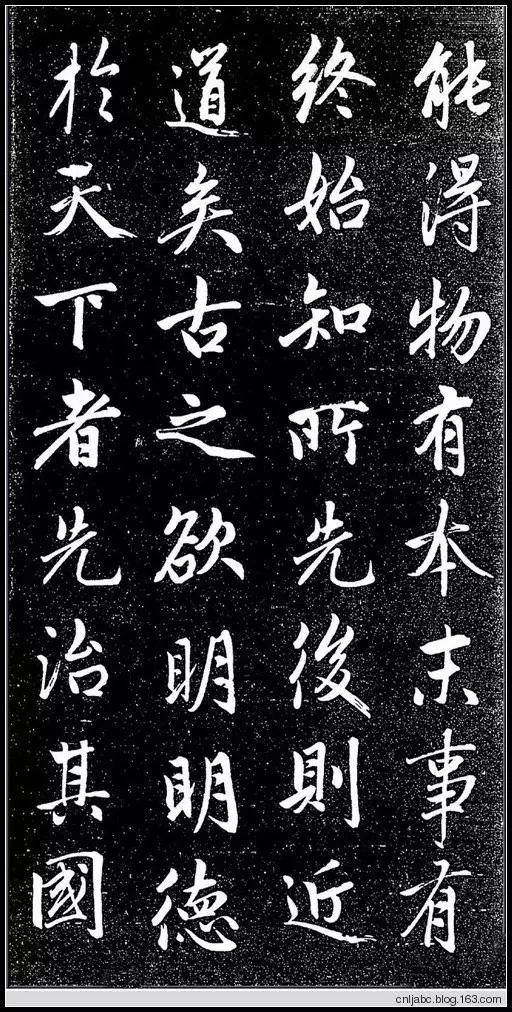 能得物有本末事有
終始知所先後則近
道矣古之欲明明德
於天下者先治其國
cnljabc.blog.163.com